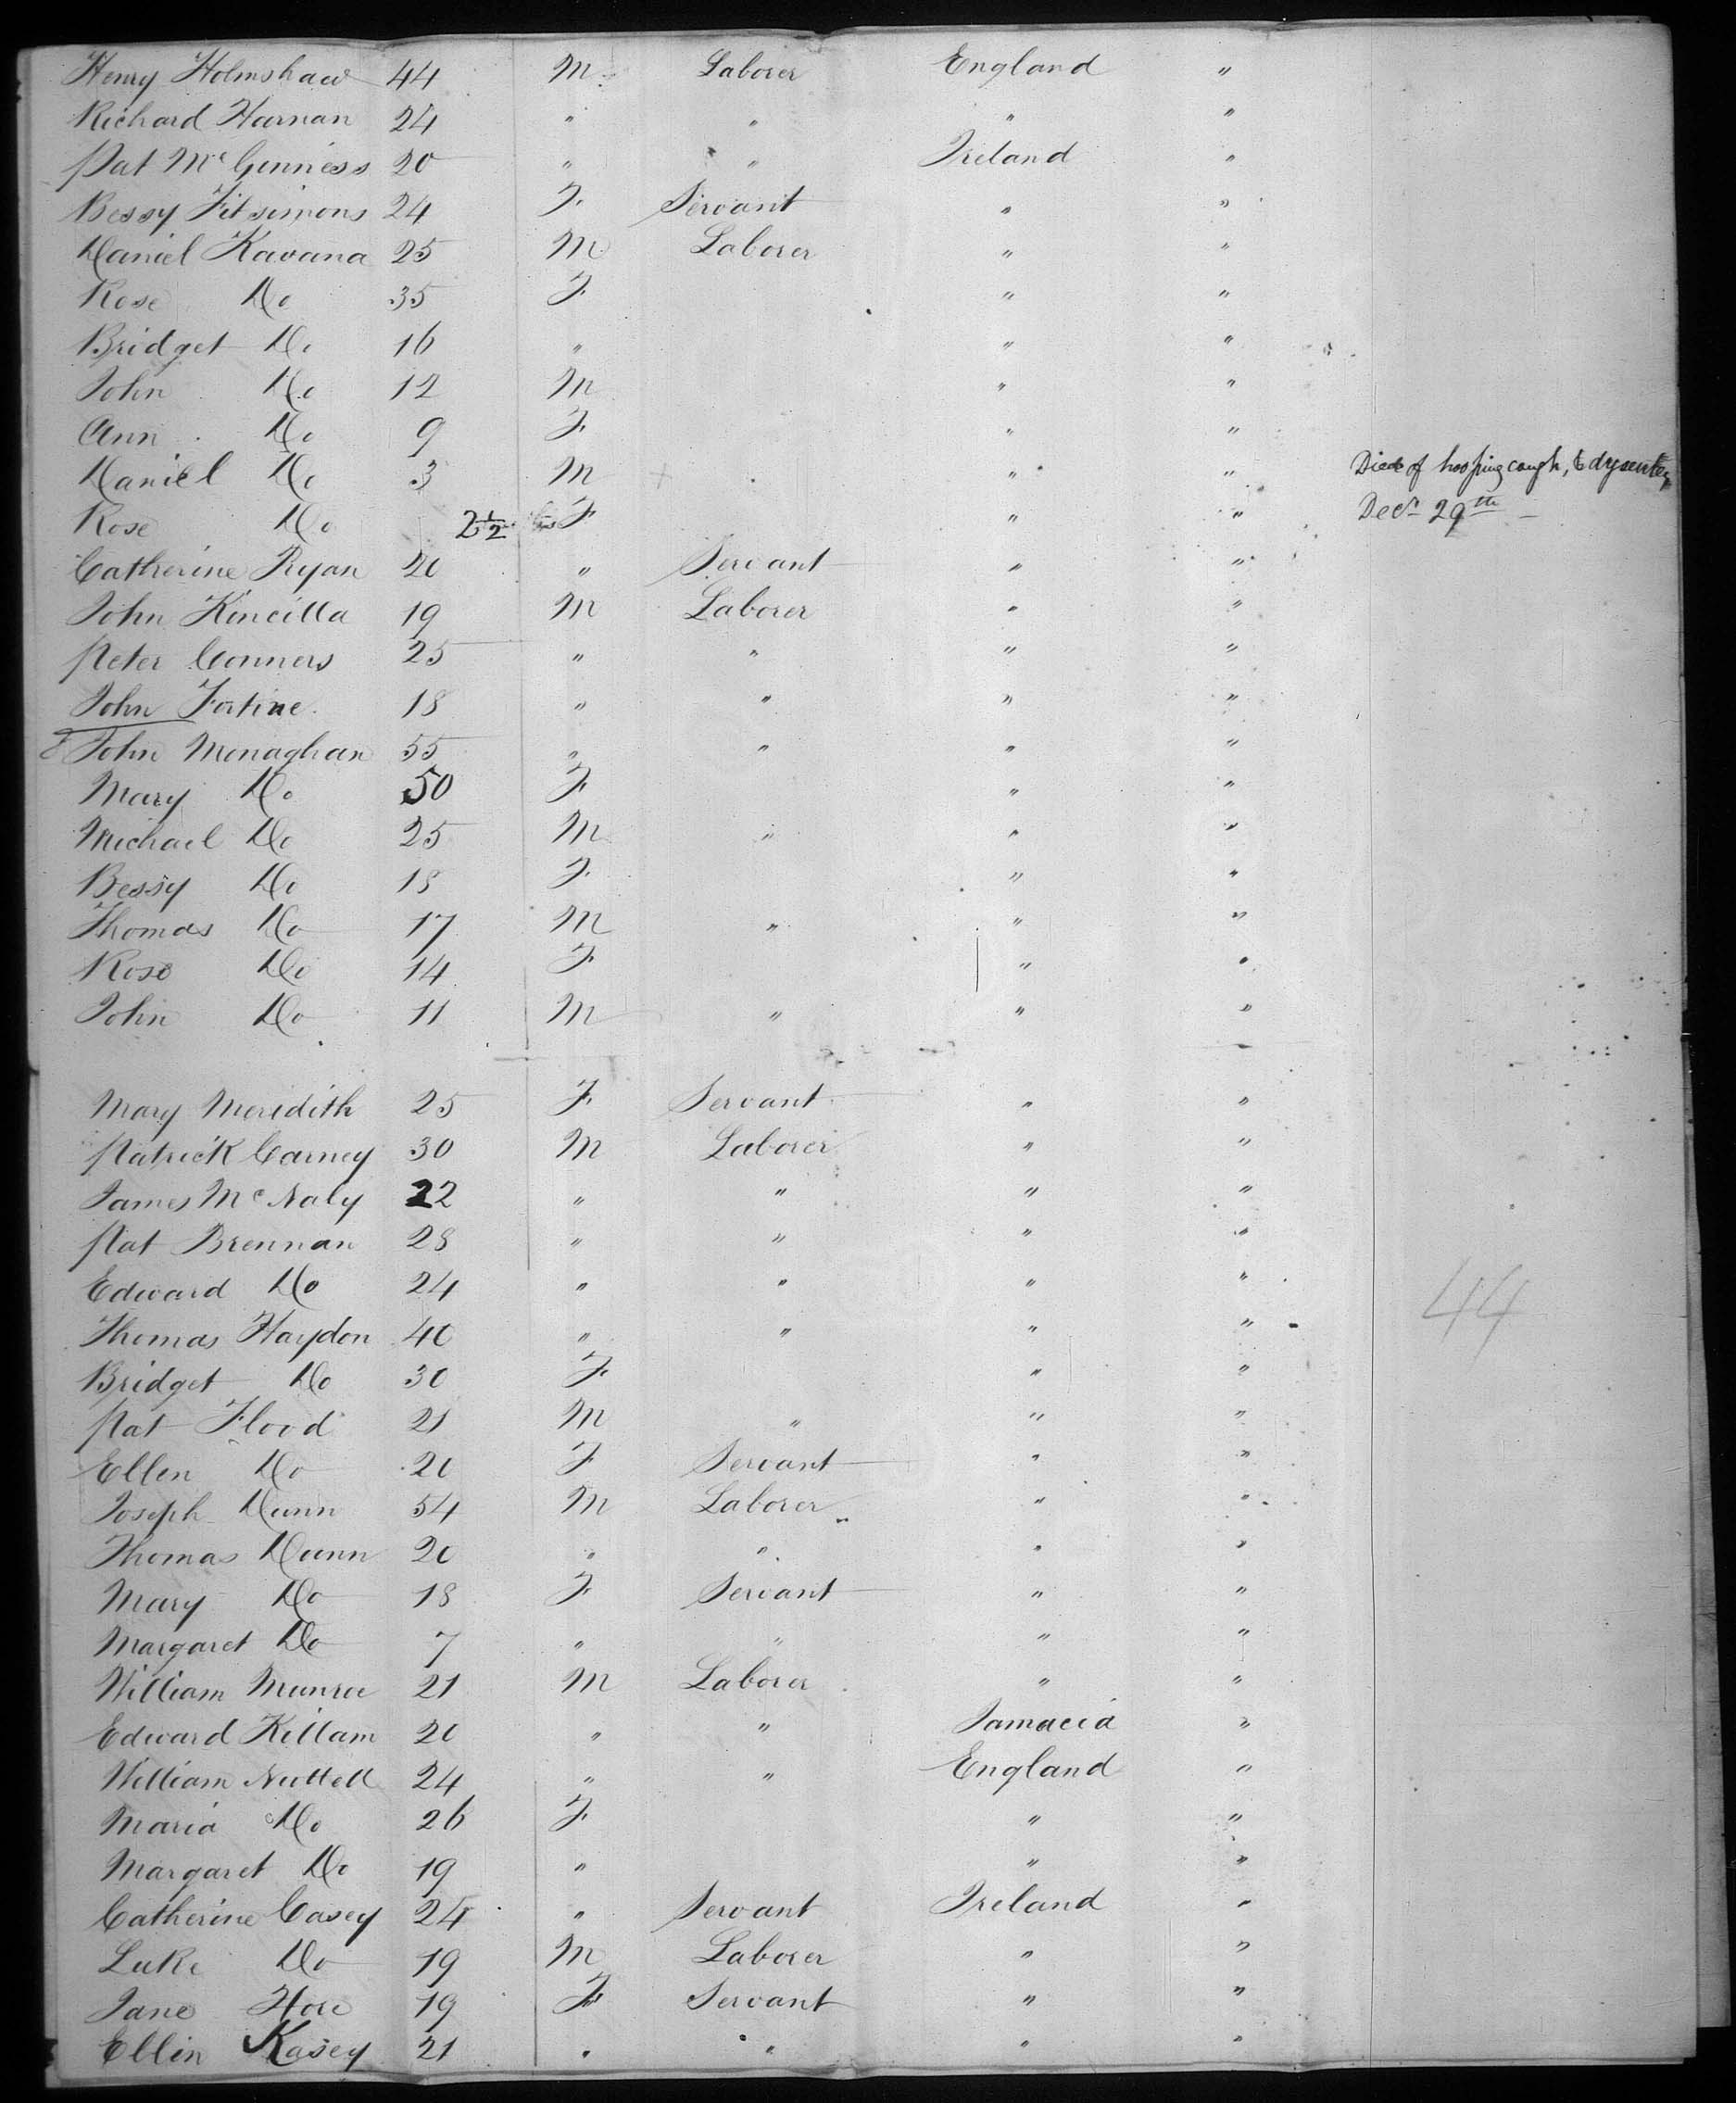 Henry Holmshaw 44 M Laborer England "
Richard Harnan 24 " " " "
Pat McGinness 20 " " Ireland "
Bessy Fitsimons 24 F Servant " "
Daniel Kavana 25 M Laborer " "
Rose Do 35 F " "
Bridget Do 16 " " "
John Do 12 M " "
Ann Do 9 F " "
Daniel Do 3 M " " Died of hooping cough, & dysentery
Rose Do 2½ F " " Decr 29th
Catherine Ryan 20 " Servant " "
John Kincilla 19 M Laborer " "
Peter Conners 25 " " " "
John Fortine 18 " " " "
John Monaghan 55 " " " "
Mary Do 50 F " "
Michael Do 25 M " " "
Bessy Do 18 F " "
Thomas Do 17 M " " "
Rose Do 14 F " "
John Do 11 M " " "
Mary Meridith 25 F Servant " "
Patrick Carney 30 M Laborer " "
James McNaly 22 " " " "
Pat Brennan 28 " " " "
Edward Do 24 " " " "
44
Thomas Haydon 40 " " " "
Bridget Do 30 F " "
Pat Flood 21 M " " "
Ellen Do 20 F Servant " "
Joseph Dunn 54 M Laborer " "
Thomas Dunn 20 " " " "
Mary Do 18 F Servant " "
Margaret Do 7 " " " "
William Munroe 21 M Laborer " "
Edward Killam 20 " " Jamacia "
William Nuttell 24 " " England "
Maria Do 26 F " "
Margaret Do 19 " " "
Catherine Casey 24 " Servant Ireland "
Luke Do 19 M Laborer " "
Jane Hore 19 F Servant " "
Ellin Kasey 21 " " " "